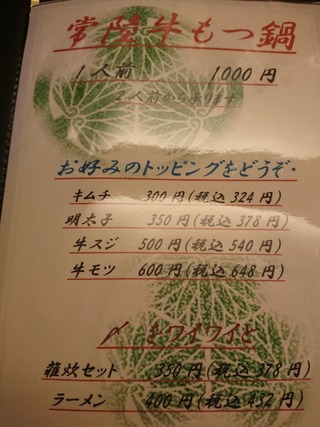 常陸牛もつ鍋
1人前 1000円
2人前から承ります
お好みのトッピングをどうぞ・
キムチ 300円(税込324円)
明太子 350円(税込378円)
牛スジ 500円(税込540円)
牛モツ 600円(税込648円)
〆もワイワイと
雑炊セット 350円(税込378円)
ラーメン 400円(税込432円)